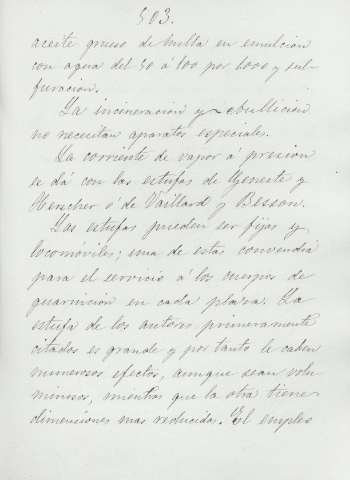 503.
aceite grueso de hulla en emulcion
con agua del 50 á 100 por 1000 y sul-
furacion.
La incineracion y ebullición
no necesitan aparatos especiales.
La corriente de vapor á presion
se dá con las estufas de Geneste y
Herscher ó de Vaillard y Besson.
Las estufas pueden ser fijas y
locomóviles; una de estas convendrá
para el servicio á los cuerpos de
guarnicion en cada plaza. La
estufa de los autores primeramente
citados es grande y por tanto le caben
numerosos efectos, aunque sean volu-
minosos, mientras que la otra tiene
dimensiones mas reducidas. El empleo